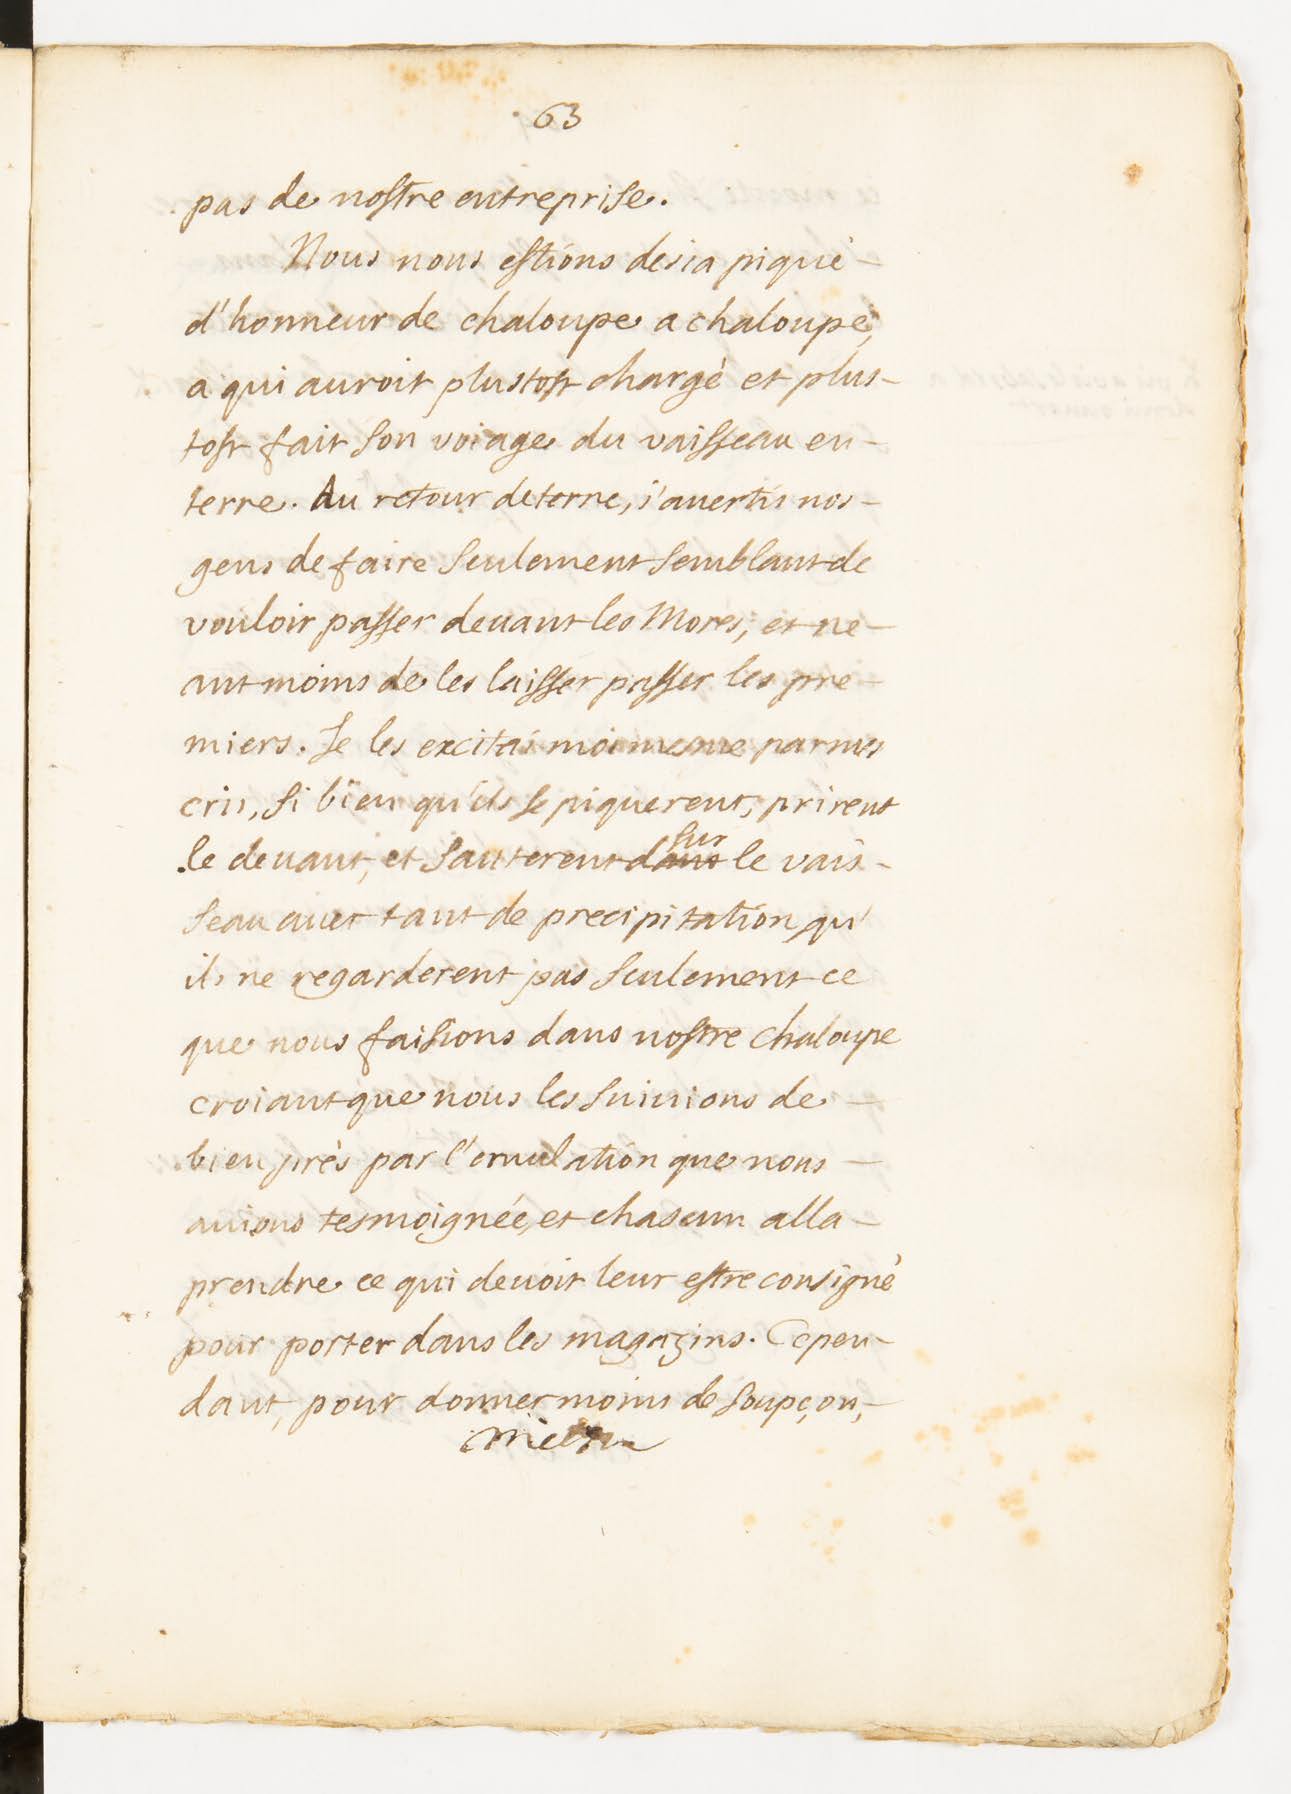 63
pas de nostre entreprise.
Nous nous estions desia piqué
d'honneur de chaloupe a chaloupe,
a qui auroit plustost chargé et plus-
tost fait son voiage du vaisseau en
terre. Au retour de terre, i'auertis nos
gens de faire seulement semblant de
vouloir passer deuant les Mores, et ne-
antmoins de les laisser passer les pre-
miers. Je les excitai moi mesme par mes
cris, si bien qu'ils se piquerent, prirent
le deuant, et sauterent dans sur le vais-
seau auec tant de precipitation qu'
ils ne regarderent pas seulement ce
que nous faisions dans nostre chaloupe
croiant que nous les suiuions de
bien près par l'emulation que nous
auions tesmoignée, et chascun alla
prendre ce qui deuoit leur estre consigné
pour porter dans les magazins. Cepen-
dant, pour donner moins de soupçon,